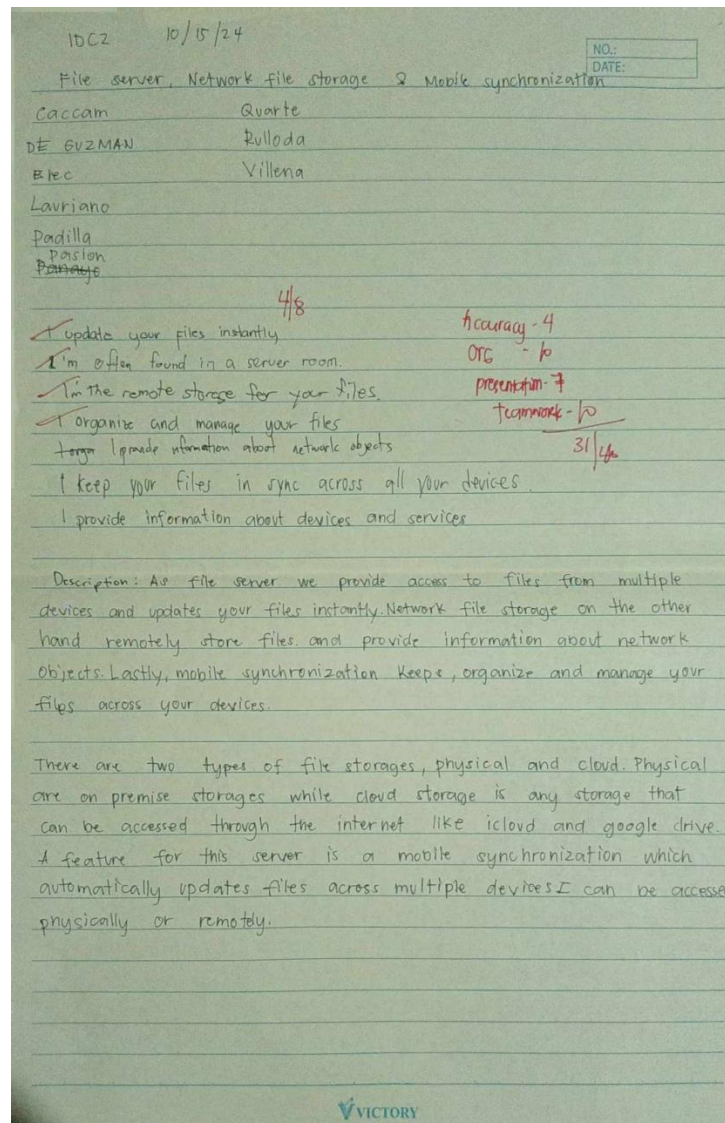 IDC2 10/15/24
NO.:
DATE:
File server, Network file storage & Mobile synchronization
Caccam Quarte
DE GUZMAN Rulloda
Blec Villena
Lauriano
Padilla
Paslon
4/8
I update your files instantly
I'm often found in a server room.
I'm the remote storage for your files.
I organize and manage your files
I provide information about network objects
I keep your files in sync across all your devices.
I provide information about devices and services
Accuracy - 4
Org - 10
presentation - 7
teamwork - 10
31/40
Description: As file server we provide access to files from multiple
devices and updates your files instantly. Network file storage on the other
hand remotely store files. and provide information about network
objects. Lastly, mobile synchronization keeps, organize and manage your
files across your devices.
There are two types of file storages, physical and cloud. Physical
are on premise storages while cloud storage is any storage that
can be accessed through the internet like icloud and google drive.
A feature for this server is a mobile synchronization which
automatically updates files across multiple devices I can be accesse
physically or remotely.
VICTORY